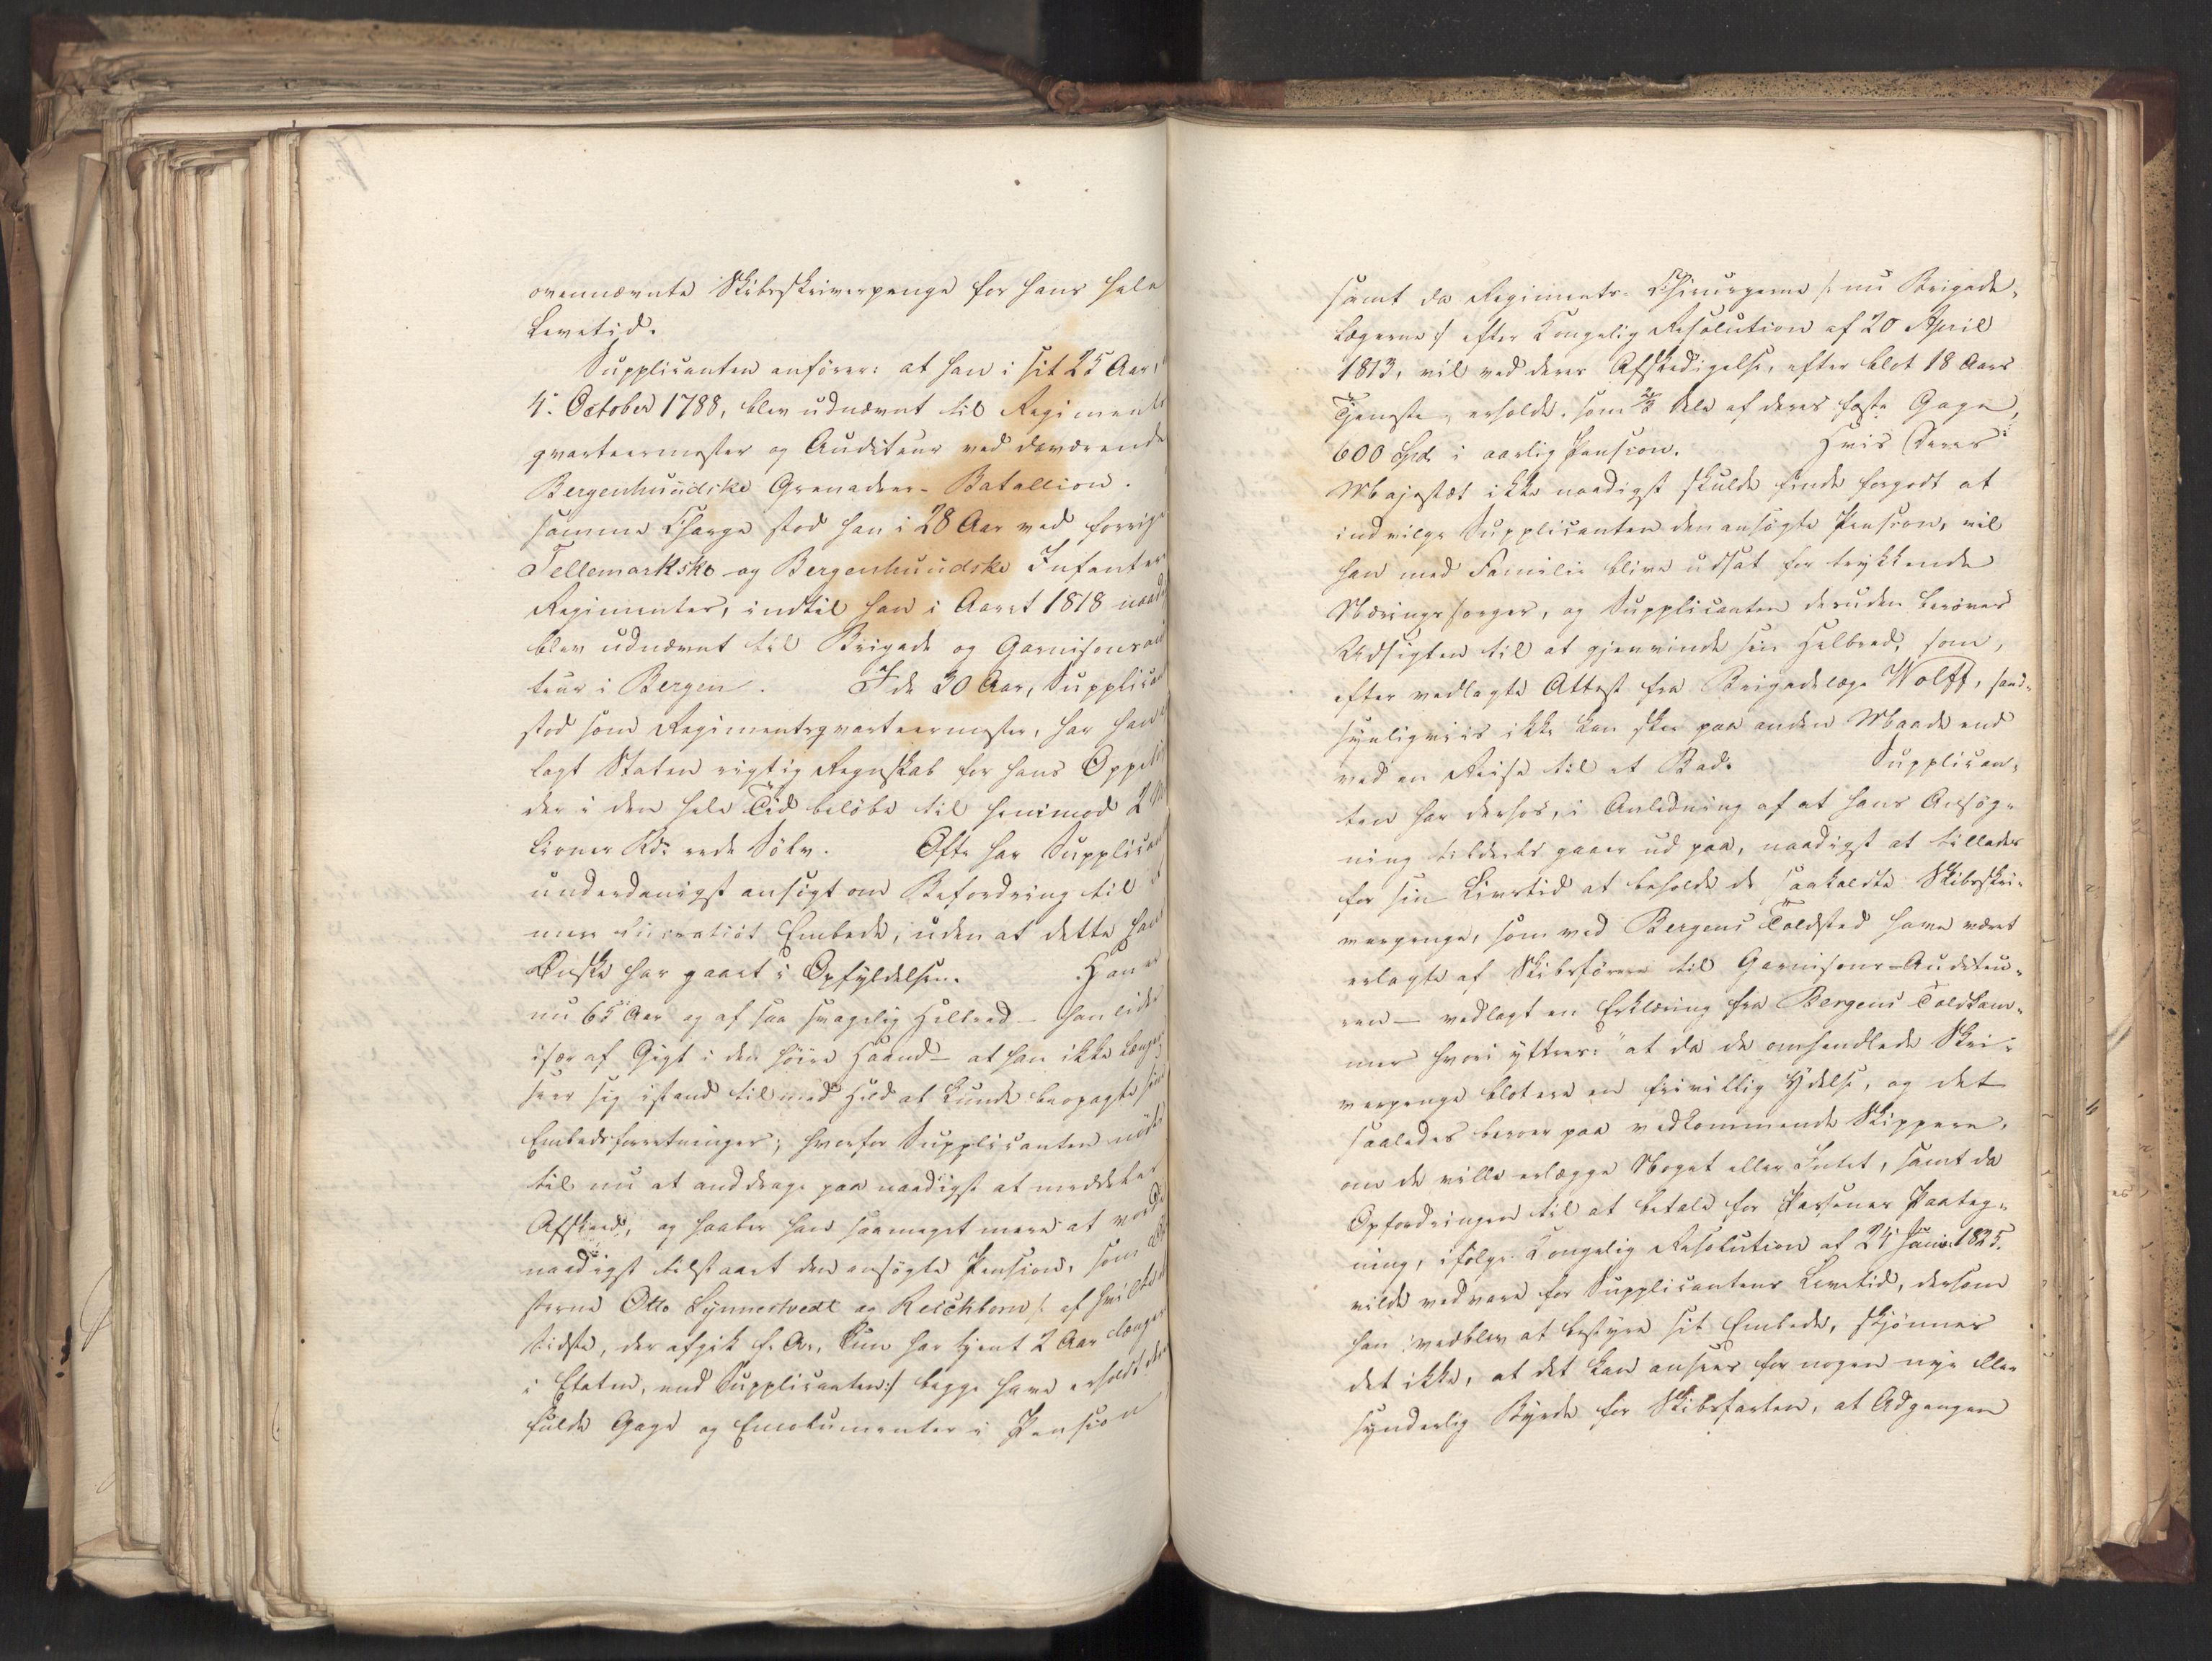 ovennævnte Skibsskriverpenge for hans hele
Levetid.
Supplicanten anfører: at han i sit 25 Aar,
4. October 1788, blev udnævnt til Regiments
qvarteermester og Auditeur ved daværende
Bergenhuusiske Grenadeer-Batallion.
samme Charge stod han i 28 Aar ved forrige
Tellemarkske og Bergenhuusiske Infanter
Regimenter, indtil han i Aaret 1818 naad
blev udnævnt til Brigade og Garnisonsau
teur i Bergen. I de 30 Aar, Supplican
stod som Regimentsqvarteermester, har han
lagt Staten rigtig Regnskab for hans Oppe
der i den hele Tid beløbe til henimod 2
lioner Rd: rede Sölv. Ofte har Supplican
underdanigst ansögt om Befordring til
mere lucrativt Embede, uden at dette hans
Ønske har gaaet i Opfyldelse. Han er
nu 65 Aar og af saa svagelig Helbred - han lider
især af Gigt i den höire Haand - at han ikke længer
seer sig istand til med Held at kunde besørge sine
Embedsforretninger; hvorfor Supplicanten nødes
til nu at anddrage paa naadigst at meddeles
Afskeed, og haaber han saameget mere at vorde
naadigst tilstaaet den ansøgte Pension, som
sterne Otto Synnestvedt og Reichborn /: af hvilke
sidste, der afgik f. A., kun har tjent 2 Aar længer
i Etaten, end Supplicanten :/ begge have erholdt
fulde Gage og Emolumenter i Pension
samt da Regiments-Chirurgerne /: nu Brigade-
Lægerne :/ efter Kongelig Resolution af 20 April
1813, vil ved deres Afskedigelse, efter blot 18 Aars
Tjeneste, erholde, som 2/3 Dele af deres faste Gage,
600 Spd. i aarlig Pension. Hvis Deres
Majestæt ikke naadigst skulde finde forgodt at
indvilge Supplicanten den ansøgte Pension, vil
han med Familie blive udsat for trykkende
Næringssorger, og Supplicanten desuden beröves
Udsigten til at gjenvinde sin Helbred, som,
efter vedlagte Attest fra Brigadelæge Wolff, sand-
synligviis ikke kan skee paa anden Maade end
ved en Reise til et Bad. Supplican-
ten har derhos, i Anledning af at hans Ansøg-
ning tildeels gaaer ud paa, naadigst at tillades
for sin Livstid at beholde de saakaldte Skibsskri-
verpenge, som ved Bergens Toldsted have været
erlagte af Skibsförere til Garnisons-Auditeu-
ren - vedlagt en Erklæring fra Bergens Toldkam-
mer hvori yttres: "at da de omhandlede Skri-
verpenge blot ere en frivillig Ydelse, og det
saaledes beroer paa vedkommende Skippere,
om de ville erlægge Noget eller Intet, samt da
Opfordringen til at betale for Passenes Paateg-
ning, ifølge Kongelig Resolution af 24 Juni 1825,
vilde vedvare for Supplicantens Levetid, dersom
han vedblev at bestyre sit Embede, skjønnes
det ikke, at det kan ansees for nogen nye eller
synderlig Byrde for Skibsfarten, at Adgangen